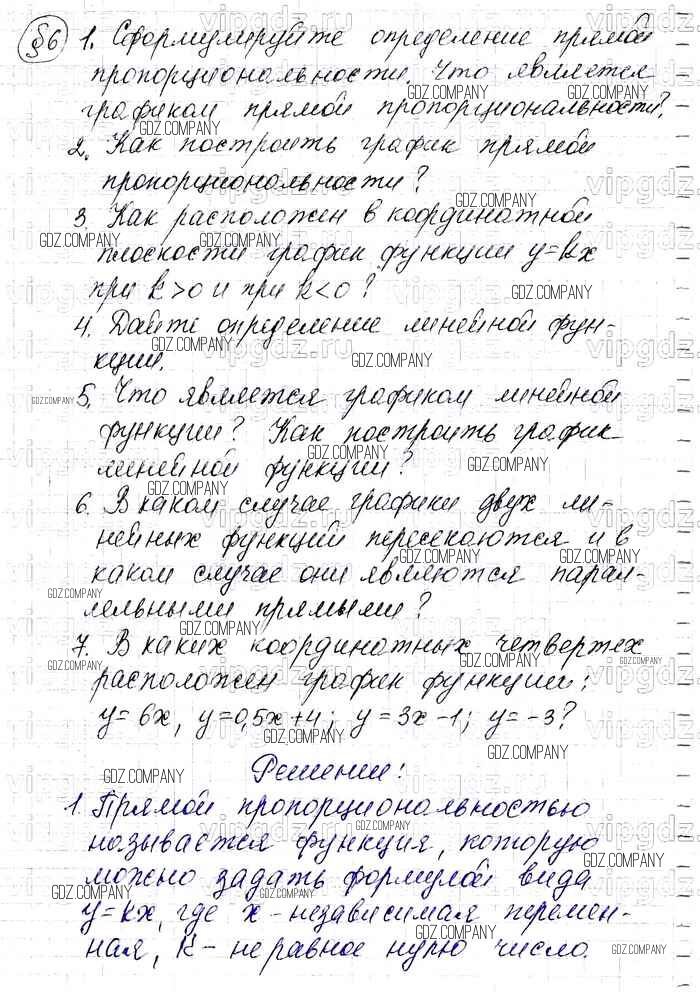 §6 1. Сформулируйте определение прямой
пропорциональности. Что является
графиком прямой пропорциональности?
2. Как построить график прямой
пропорциональности?
3. Как расположен в координатной
плоскости график функции y=kx
при k>0 и при k<0?
4. Дайте определение линейной фун-
кции.
5. Что является графиком линейной
функции? Как построить график
линейной функции?
6. В каком случае графики двух ли-
нейных функций пересекаются и в
каком случае они являются парал-
лельными прямыми?
7. В каких координатных четвертях
расположен график функции:
y=6x, y=0,5x+4; y=3x-1; y=-3?
Решение:
1. Прямой пропорциональностью
называется функция, которую
можно задать формулой вида
y=kx, где x - независимая перемен-
ная, k - не равное нулю число.